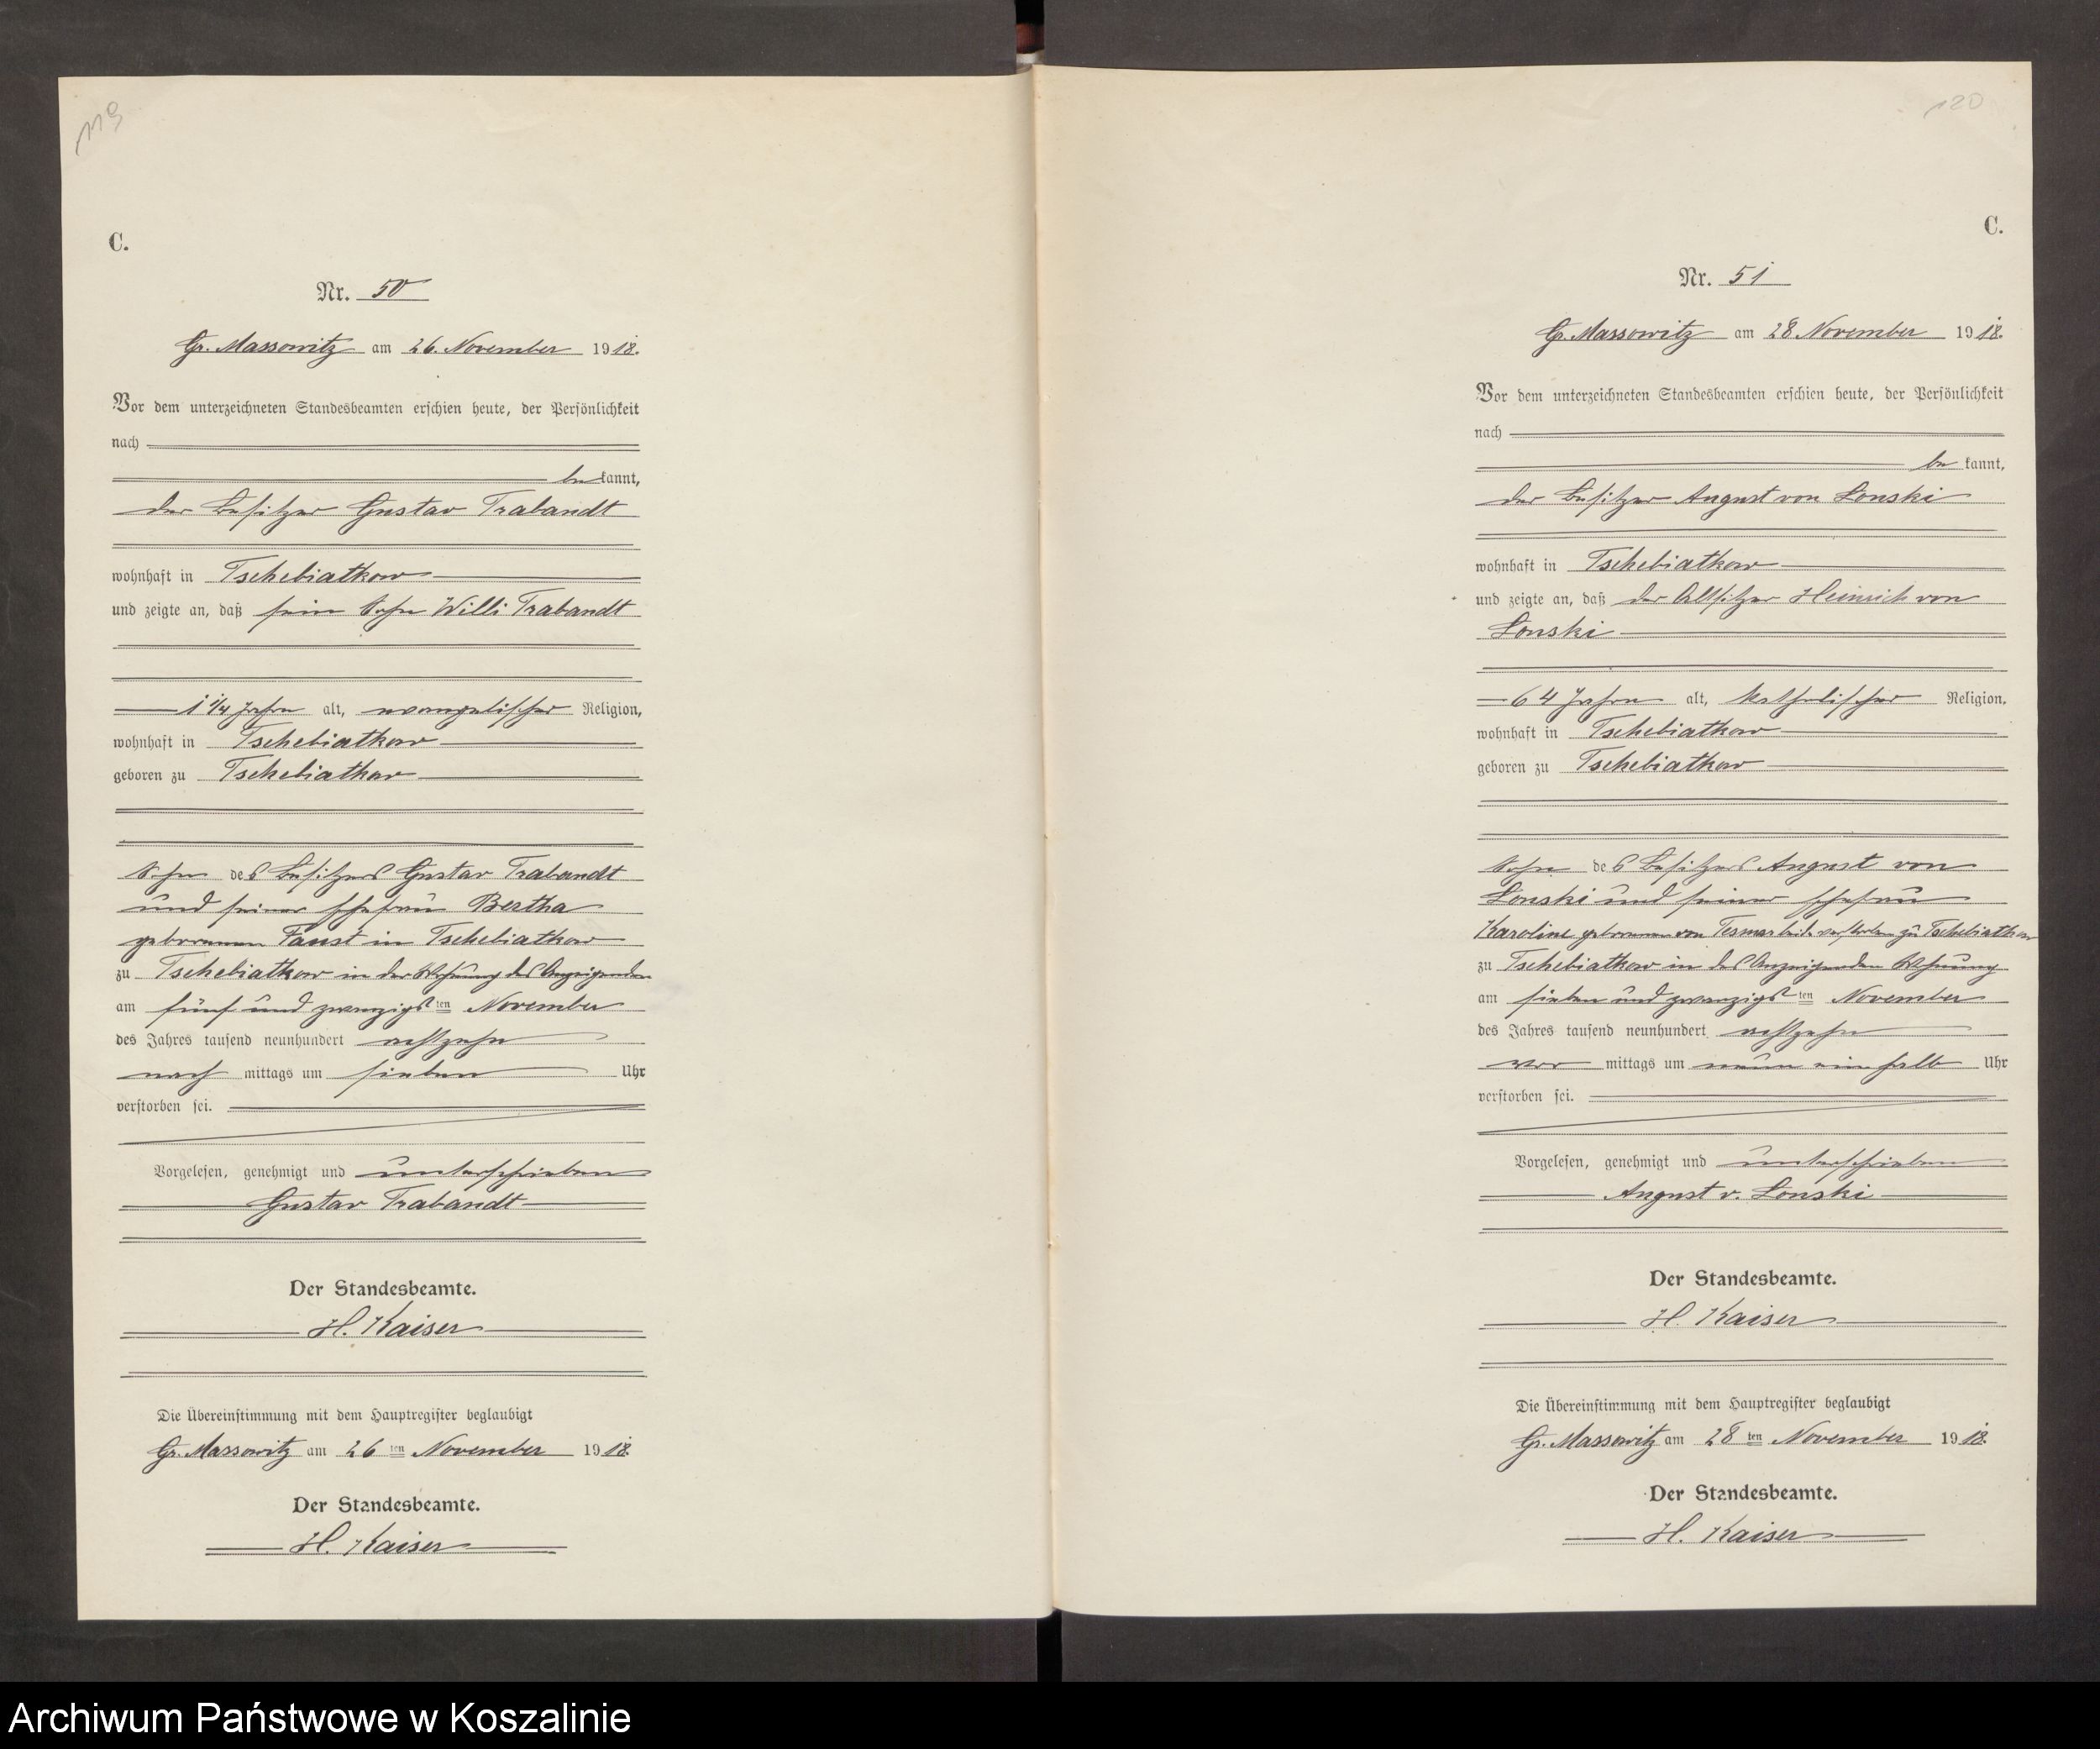 119
C.
Nr. 50
Gr. Massowitz am 26. November 1918.
Vor dem unterzeichneten Standesbeamten erschien heute, der Persönlichkeit
nach
be kannt,
der Besitzer Gustav Trabandt
wohnhaft in Tschebiatkow
und zeigte an, daß sein Sohn Willi Trabandt
1 1/4 Jahre alt, evangelischer Religion,
wohnhaft in Tschebiatkow
geboren zu Tschebiatkow
Sohn des Besitzers Gustav Trabandt
und seiner Ehefrau Bertha
geborenen Faust in Tschebiatkow
zu Tschebiatkow in der Wohnung des Anzeigenden
am fünf und zwanzigsten November
des Jahres tausend neunhundert achtzehn
nach mittags um sieben Uhr
verstorben sei.
Vorgelesen, genehmigt und unterschrieben
Gustav Trabandt
Der Standesbeamte.
H. Kaiser
Die Übereinstimmung mit dem Hauptregister beglaubigt
Gr. Massowitz am 26 ten November 1918.
Der Standesbeamte.
H. Kaiser
120
C.
Nr. 51
Gr. Massowitz am 28 November 1918.
Vor dem unterzeichneten Standesbeamten erschien heute, der Persönlichkeit
nach
be kannt,
der Besitzer August von Lonski
wohnhaft in Tschebiatkow
und zeigte an, daß der Altsitzer Heinrich von
Lonski
64 Jahre alt, katholischer Religion,
wohnhaft in Tschebiatkow
geboren zu Tschebiatkow
Sohn des Besitzers August von
Lonski und seiner Ehefrau
Karoline geborenen von verstorben zu Tschebiatkow
zu Tschebiatkow in des Anzeigenden Wohnung
am sieben und zwanzigsten November
des Jahres tausend neunhundert achtzehn
vor mittags um neun ein halb Uhr
verstorben sei.
Vorgelesen, genehmigt und unterschrieben
August v. Lonski
Der Standesbeamte.
H. Kaiser
Die Übereinstimmung mit dem Hauptregister beglaubigt
Gr. Massowitz am 28 ten November 1918.
Der Standesbeamte.
H. Kaiser
Archiwum Państwowe w Koszalinie